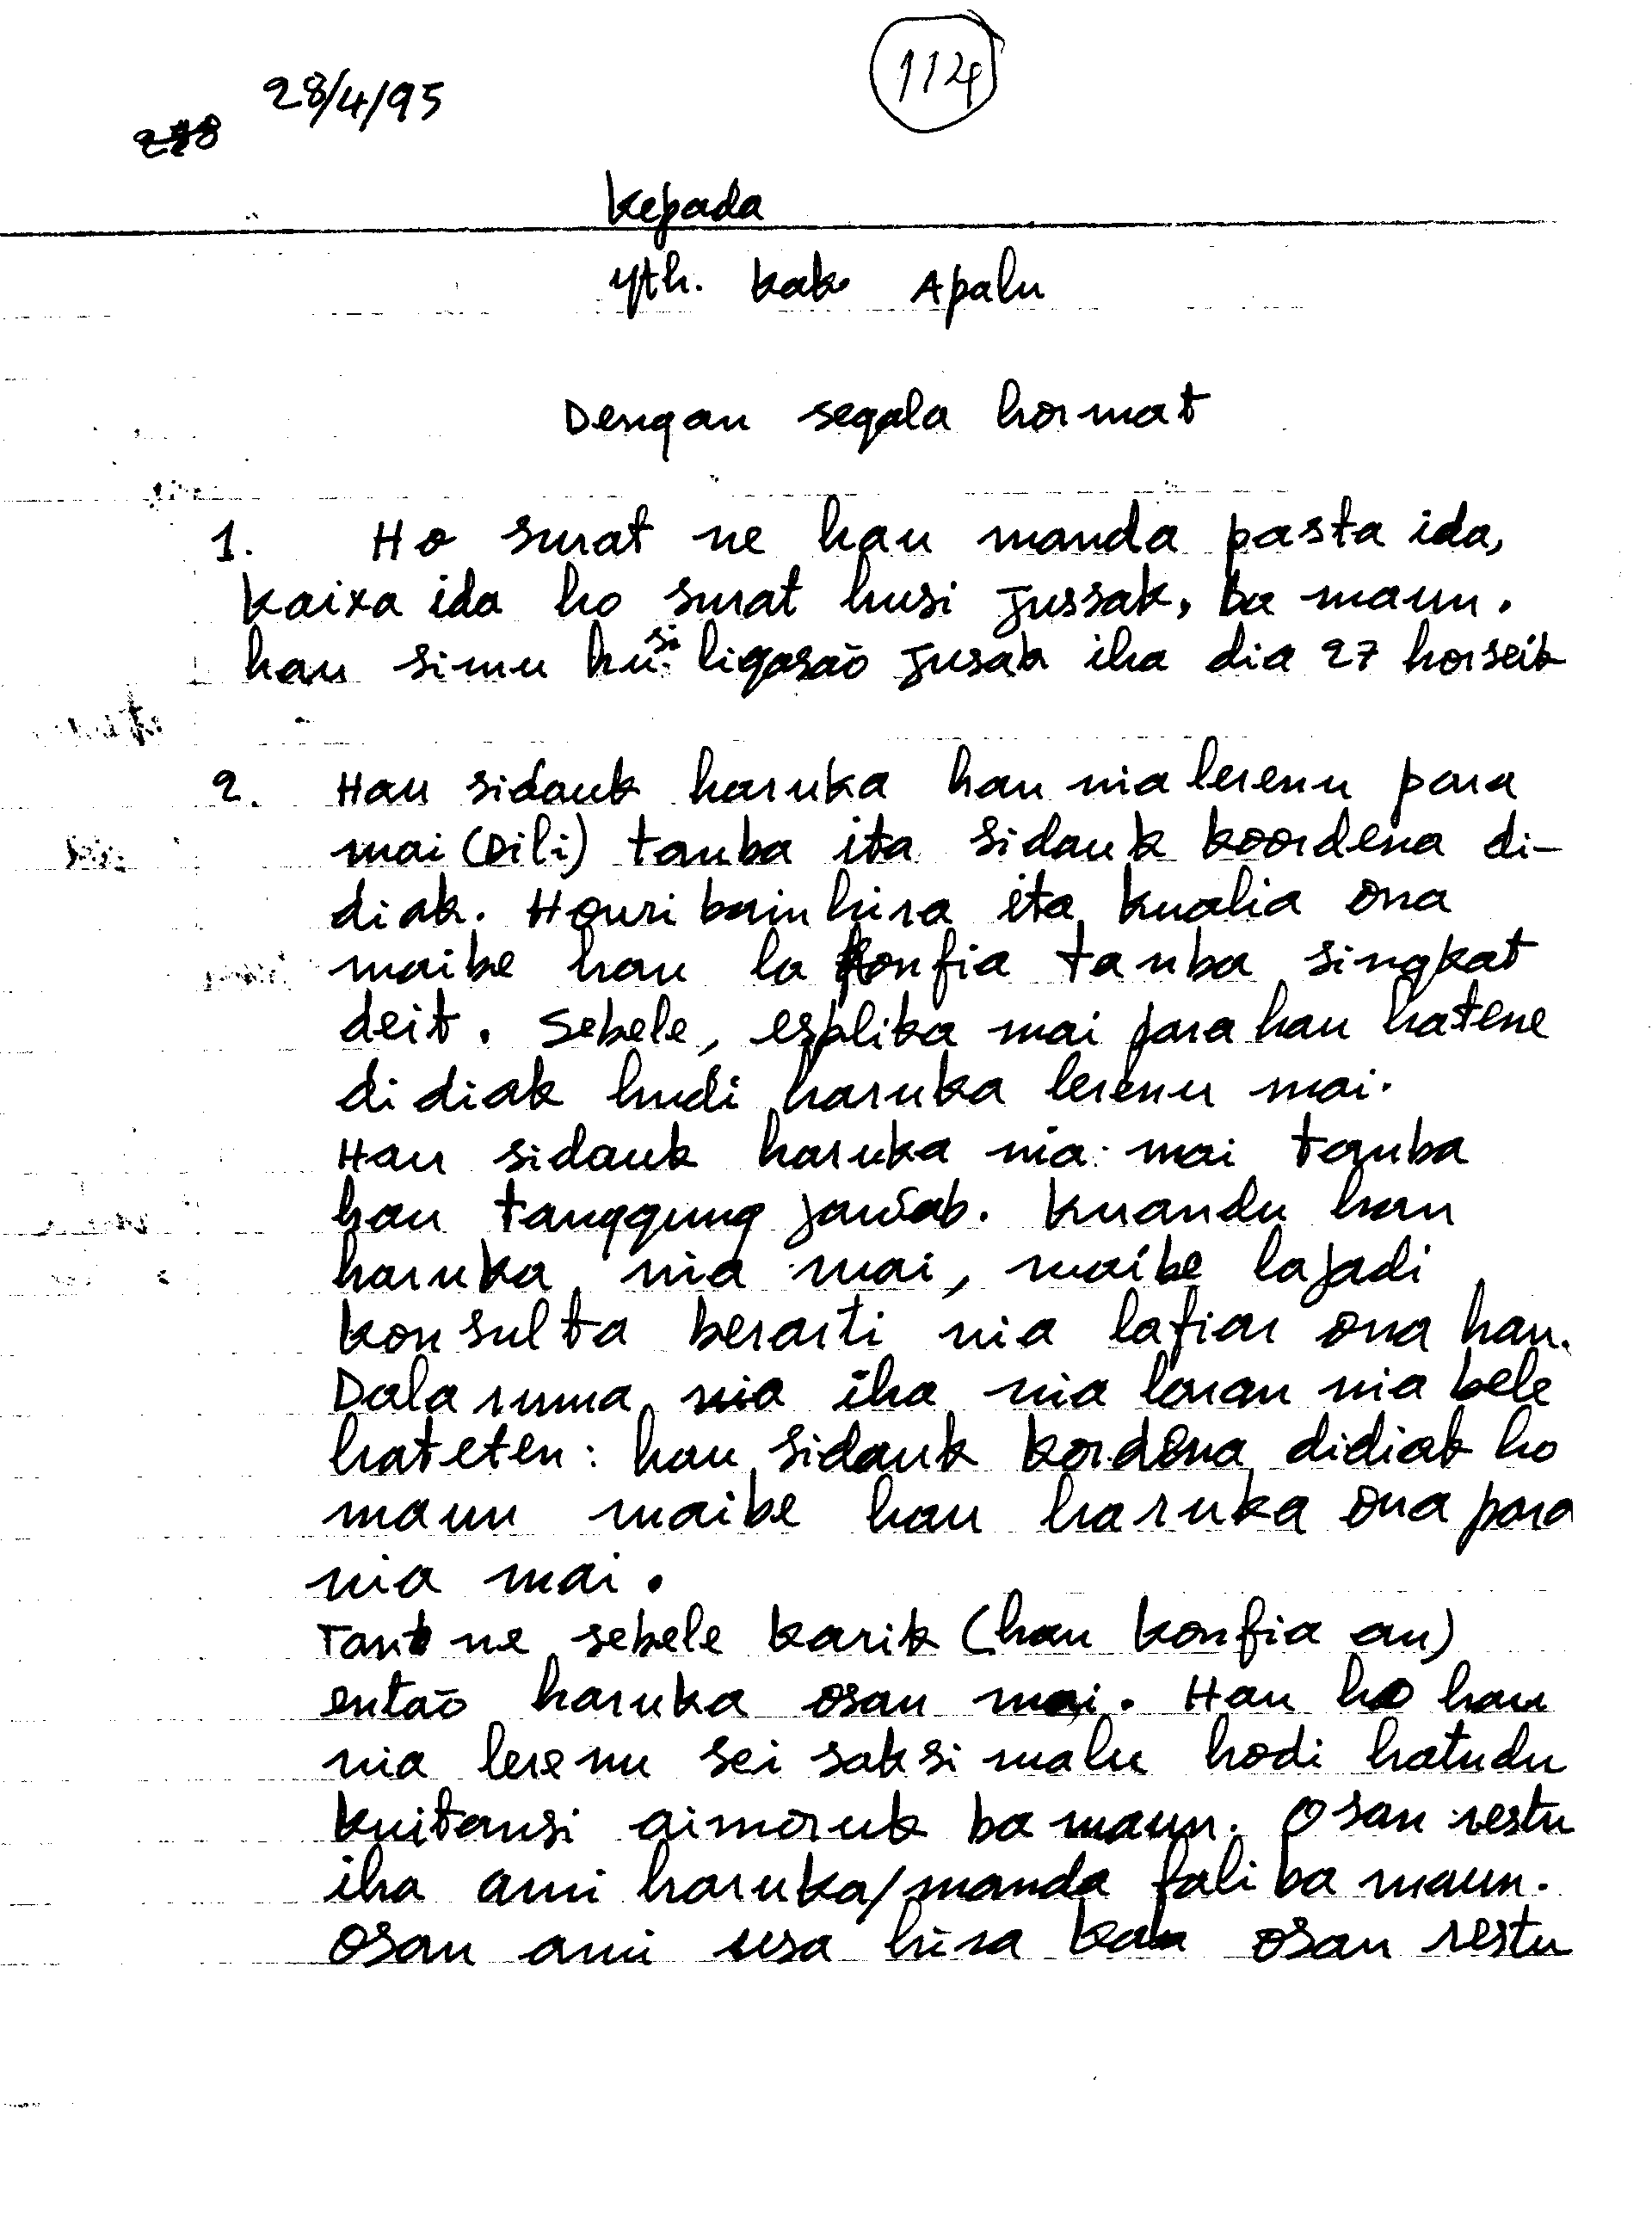 112q
28/4/95
Kepada
yth. kak Apalu
Dengan segala hormat
1. Ho surat ne hau manda pasta ida,
kaixa ida ho surat husi Jussak, ba maun.
hau simu husi ligasaõ Jusak iha dia 27 horseik
2. Hau sidauk haruka hau nia lerenu para
mai (Dili) tanba ita sidauk koordena di-
diak. Houri bainhira ita kualia ona
maibe hau la konfia tanba singkat
deit. Sebele, esplika mai para hau hatene
didiak hudi haruka lerenu mai.
Hau sidauk haruka nia mai tanba
hau tanggung jawab. Kuandu hau
haruka nia mai, maibe lajadi
konsulta berarti nia lafiar ona hau.
Dala ruma nia iha nia laran nia bele
hateten: hau sidauk kordena didiak ho
maun maibe hau haruka ona para
nia mai.
Tan ne sebele karik (hau konfia an)
entaõ haruka osan mai. Hau ho hau
nia lerenu sei saksi malu hodi hatudu
kuitansi aimoruk ba maun. Osan restu
iha ami haruka/manda fali ba maun.
Osan ami usa hira kak osan restu